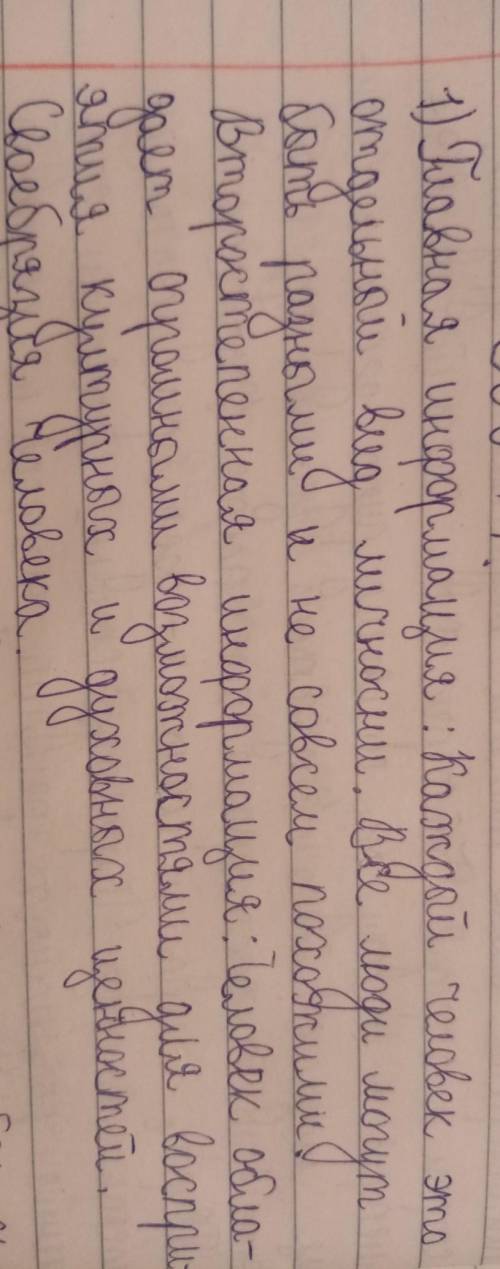 1) Главная информация: Каждой человек это
отдельный вид личносни. Все люди могут
быть разными и не совсем похожими!
Второстепенная информация: Человек обла-
дает огромными возможностями для воспри-
ятия културных и духовных ценностей.
Своебрязия Человека.